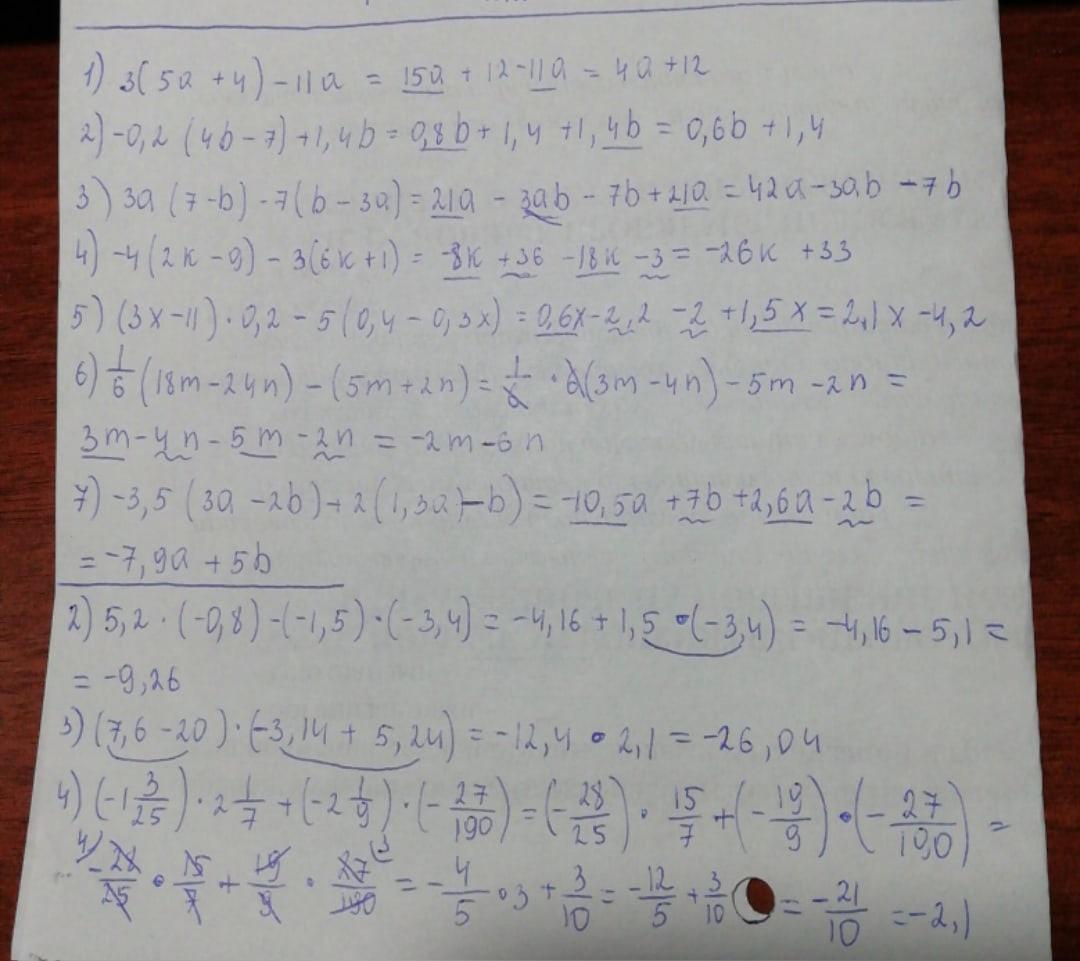 1) 3(5a + 4) - 11a = 15a + 12 - 11a = 4a + 12
2) -0,2 (4b - 7) + 1,4b = 0,8b + 1,4 + 1,4b = 0,6b + 1,4
3) 3a (7 - b) - 7(b - 3a) = 21a - 3ab - 7b + 21a = 42a - 3ab - 7b
4) -4(2k - 9) - 3(6k + 1) = -8k + 36 - 18k - 3 = -26k + 33
5) (3x - 11) · 0,2 - 5(0,4 - 0,3x) = 0,6x - 2,2 - 2 + 1,5x = 2,1x - 4,2
6) 1/6 (18m - 24n) - (5m + 2n) = 1/6 · 6(3m - 4n) - 5m - 2n =
3m - 4n - 5m - 2n = -2m - 6n
7) -3,5 (3a - 2b) + 2(1,3a - b) = -10,5a + 7b + 2,6a - 2b =
= -7,9a + 5b
2) 5,2 · (-0,8) - (-1,5) · (-3,4) = -4,16 + 1,5 · (-3,4) = -4,16 - 5,1 =
= -9,26
3) (7,6 - 20) · (-3,14 + 5,24) = -12,4 · 2,1 = -26,04
4) (-1 3/25) · 2 1/7 + (-2 1/9) · (-27/190) = (-28/25) · 15/7 + (-19/9) · (-27/190) =
-28/25 · 15/7 + 19/9 · 27/190 = -4/5 · 3 + 3/10 = -12/5 + 3/10 = -21/10 = -2,1